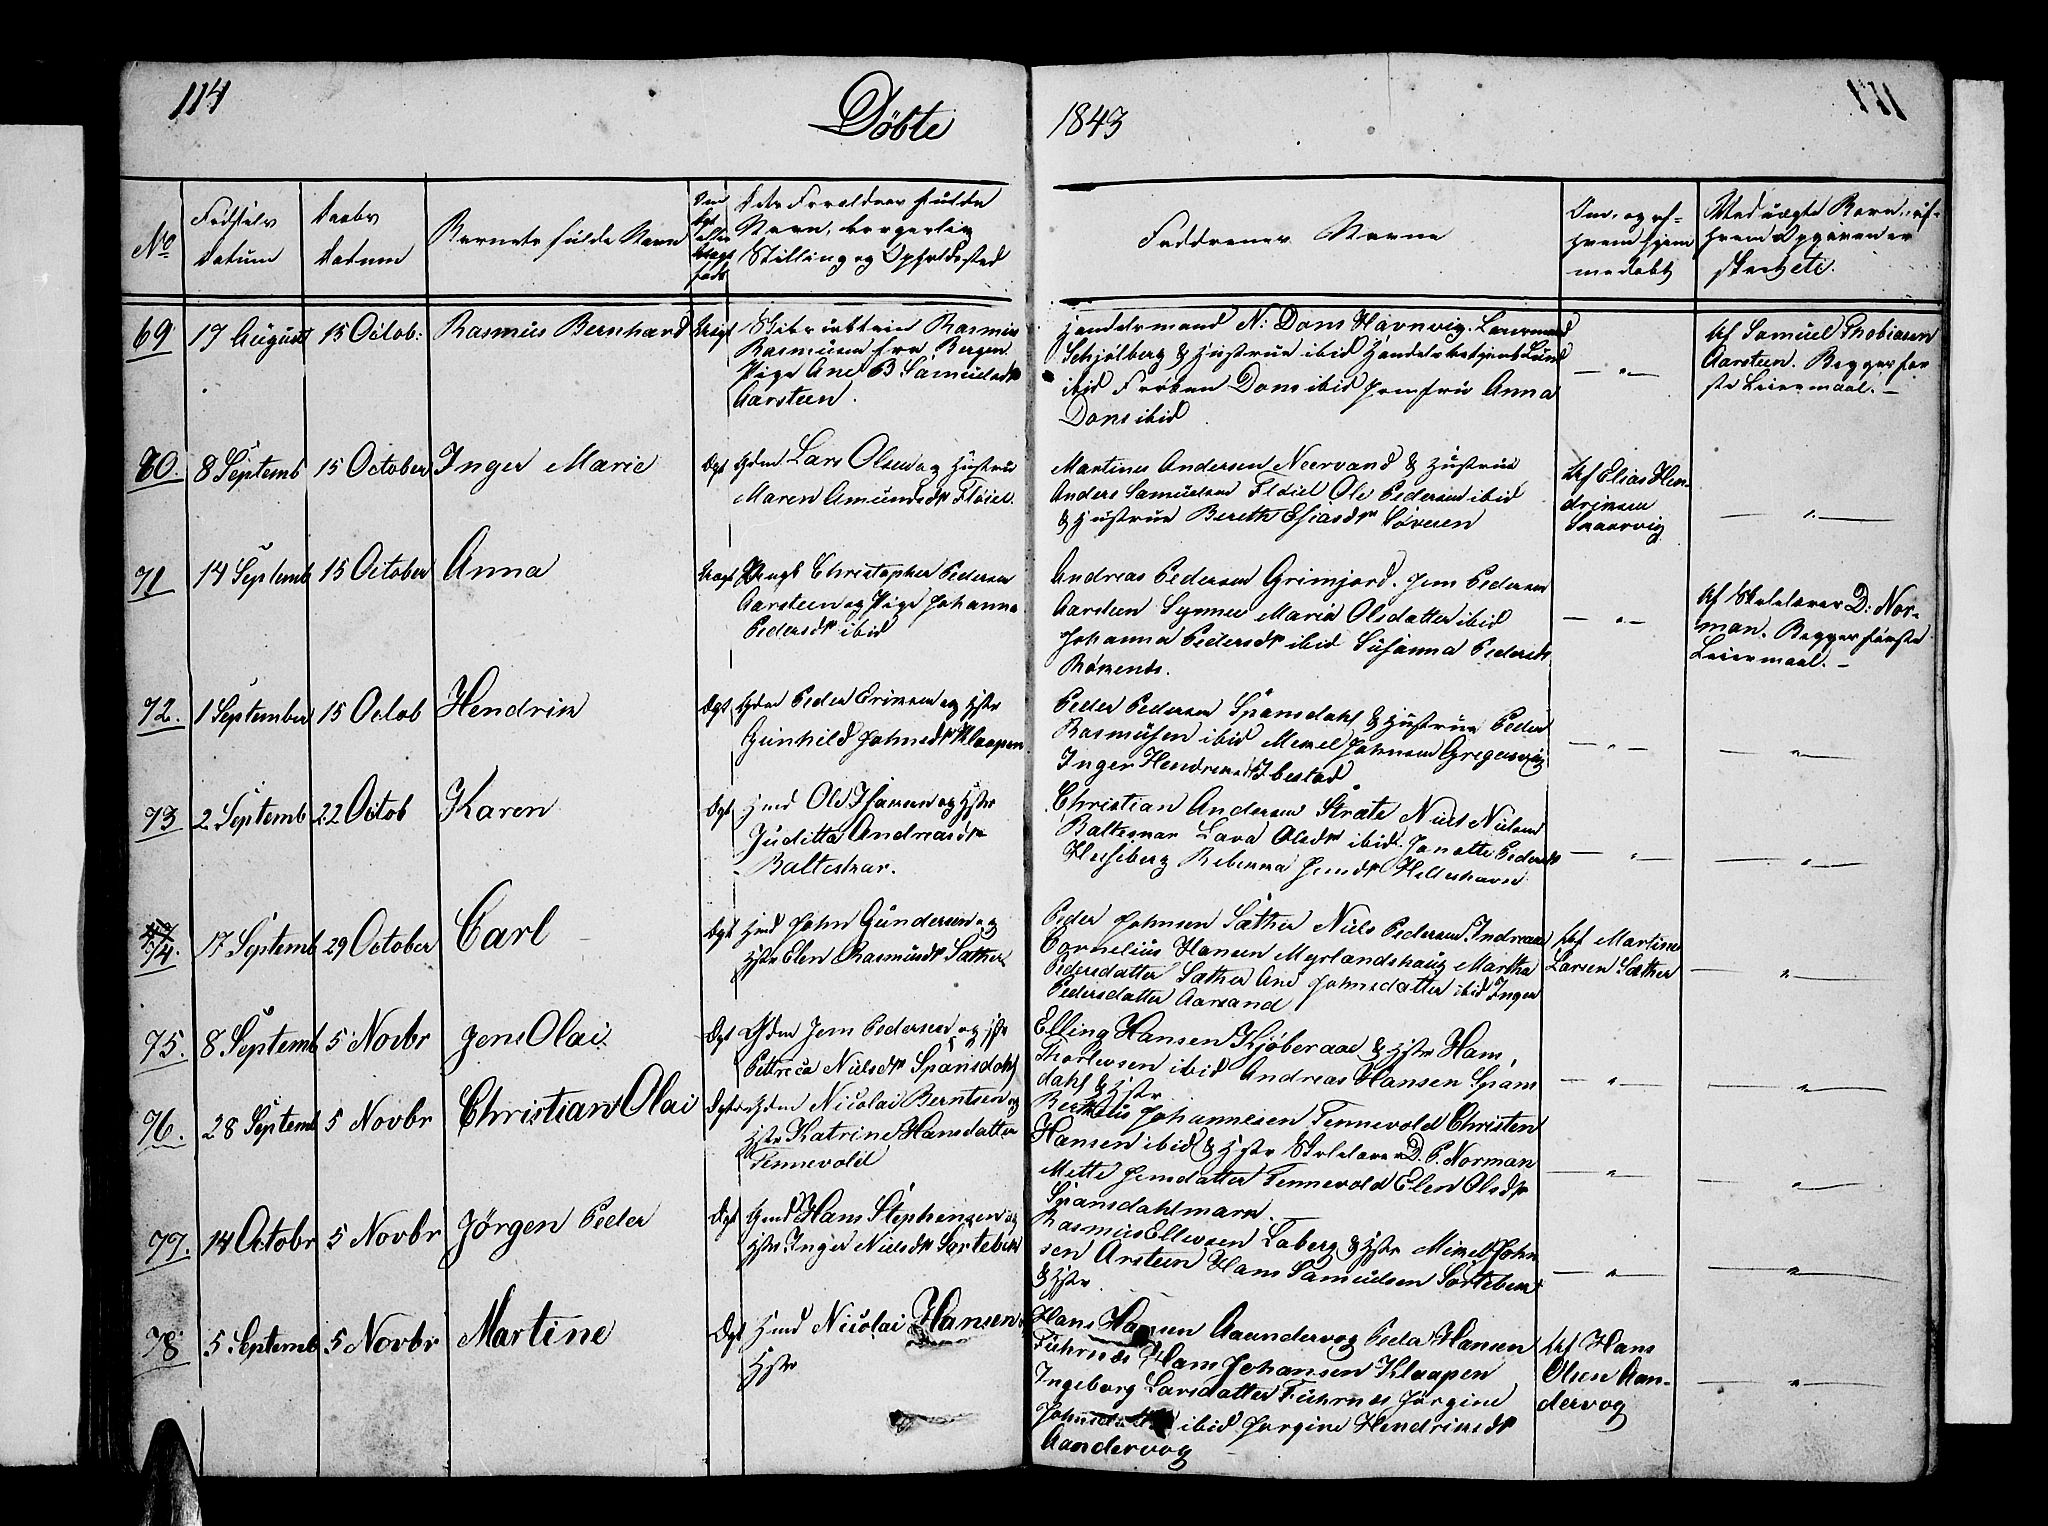 114
Döbte
1843
No
Fødsels
Datum
Daabs
Datum
Barnets fulde Navn
Om
Ægt
eller
Uægt
født
Navn, borgerlig
Stilling og Opholdssted
Faddernes Navne
Om, og af
hvem hjem
medøbt
Ved uægte Børn, af
hvem Opgaven er
skeet etc.
69 17 August 15 Octob: Rasmus Bernhard Uægt
Rasmusen fra Bergen
Pige Ane B Samuelsdr
Aarsteen.
Handelsmand N: Dons Havnvig.
Schjølberg & Hustrue ibid Lund
ibid Frøken Dons ibid Jomfru Anna
Dons ibid
Af Samuel Thobiasen
Aarsteen. Begges før
ste Leiermaal. —
— " —
70. 8 Septemb 15 October Inger Marie Ægt Gdm Lars Olsen og Hustru
Maren Amundsdr Fløiel.
Martines Andersen Neervand & Hustrue
Anders Samuelsen Fløiel Ole Pedersen ibid
& Hustrue Bereth Esiasdr
Af Elias Hen-
driksen
— " —
71 14 Septemb 15 October Anna Uægt Ungk Christopher Pedersen
Aarsteen og Pige Johanna
Pedersdr ibid
Andreas Pedersen Grimjord. Jens Pedersen
Aarsteen Synner Maria Olsdatter ibid
Johanna Pedersdr ibid Susanna Pedersdr
— " —
Af Skolelærer D: Nor-
man. Begges første
Leiermaal. —
72. 1 September 15 Octob Hendrik Ægt Gdm Peder Eriksen og Hstr
Gunhild Johnsdr Klaapen
Peder Pedersen Spansdahl & Hustrue Peder
Rasmusen ibid Mikel Johnsen Gregusvig
Inger Hendriksd Ibestad
— " —
— " —
73 2 Septemb 22 Octob Karen Ægt Hmd Ole Isaksen og Hstr
Juditta Andreasdr
Balteskar.
Christian Andersen Stræte Niels Nielsen
Balteskar Lava Olsdr ibid. Janatte Pedersdr
Hesseberg Rebekka Jensdr Helleshavn
— " —
— " —
74. 17 Septemb 29 October Carl Ægt Hmd John Gundersen og
Hstr Elen Rasmusdr Sæther
Peder Johnsen Sæther Niels Pedersen Indreaae
Cornelius Hansen Myrlandshaug Martha
Pedersdatter Sæther Ane Johnsdatter ibid Inger
Pedersdatter Aarsand
Af Martine
Larsen Sæther
— " —
75. 8 Septemb 5 Novbr Jens Olai Ægt Gdm Jens Pedersen og Hstr
Pettreca Nielsdr Spansdahl
Elling Hansen Kjøberaae & Hstr Hans
Thorlevsen ibid Andreas Hansen Spans
dahl & Hstr
— " —
— " —
76. 28 Septemb 5 Novbr Christian Olai Ægt Gdm Nicolai Berntsen og
Hstr Katrine Hansdatter
Tennevold
Bertheus Johannesen Tennevold Christen
Hansen ibid & Hstr Skolelærer D. P. Norman
Mette Jensdatter Tennevold Elen Olsdr
Spansdahlmark
— " —
— " —
77. 14 Octobr 5 Novbr Jörgen Peder Ægt Gmd Hans Stephensen og
Hstr Inger Nielsdr Sørtebek
Rasmus Ellevsen Laberg & Hstr Mikel John
sen Arsteen Hans Samuelsen Sørtebek
& Hstr
— " —
— " —
78. 5 Septemb 5 Novbr Martine Ægt Hmd Nicolai Hansen
Hstr
Hans Hansen Aandervog Peder Hansen
Fuhrnes Hans Johansen Klaapen
Ingeborg Larsdatter Fuhrnes Jörgine
Johnsdatter ibid Jörgine Hendriksdr
Aandervog
Af Hans
Olsen Aan-
dervog
— " —